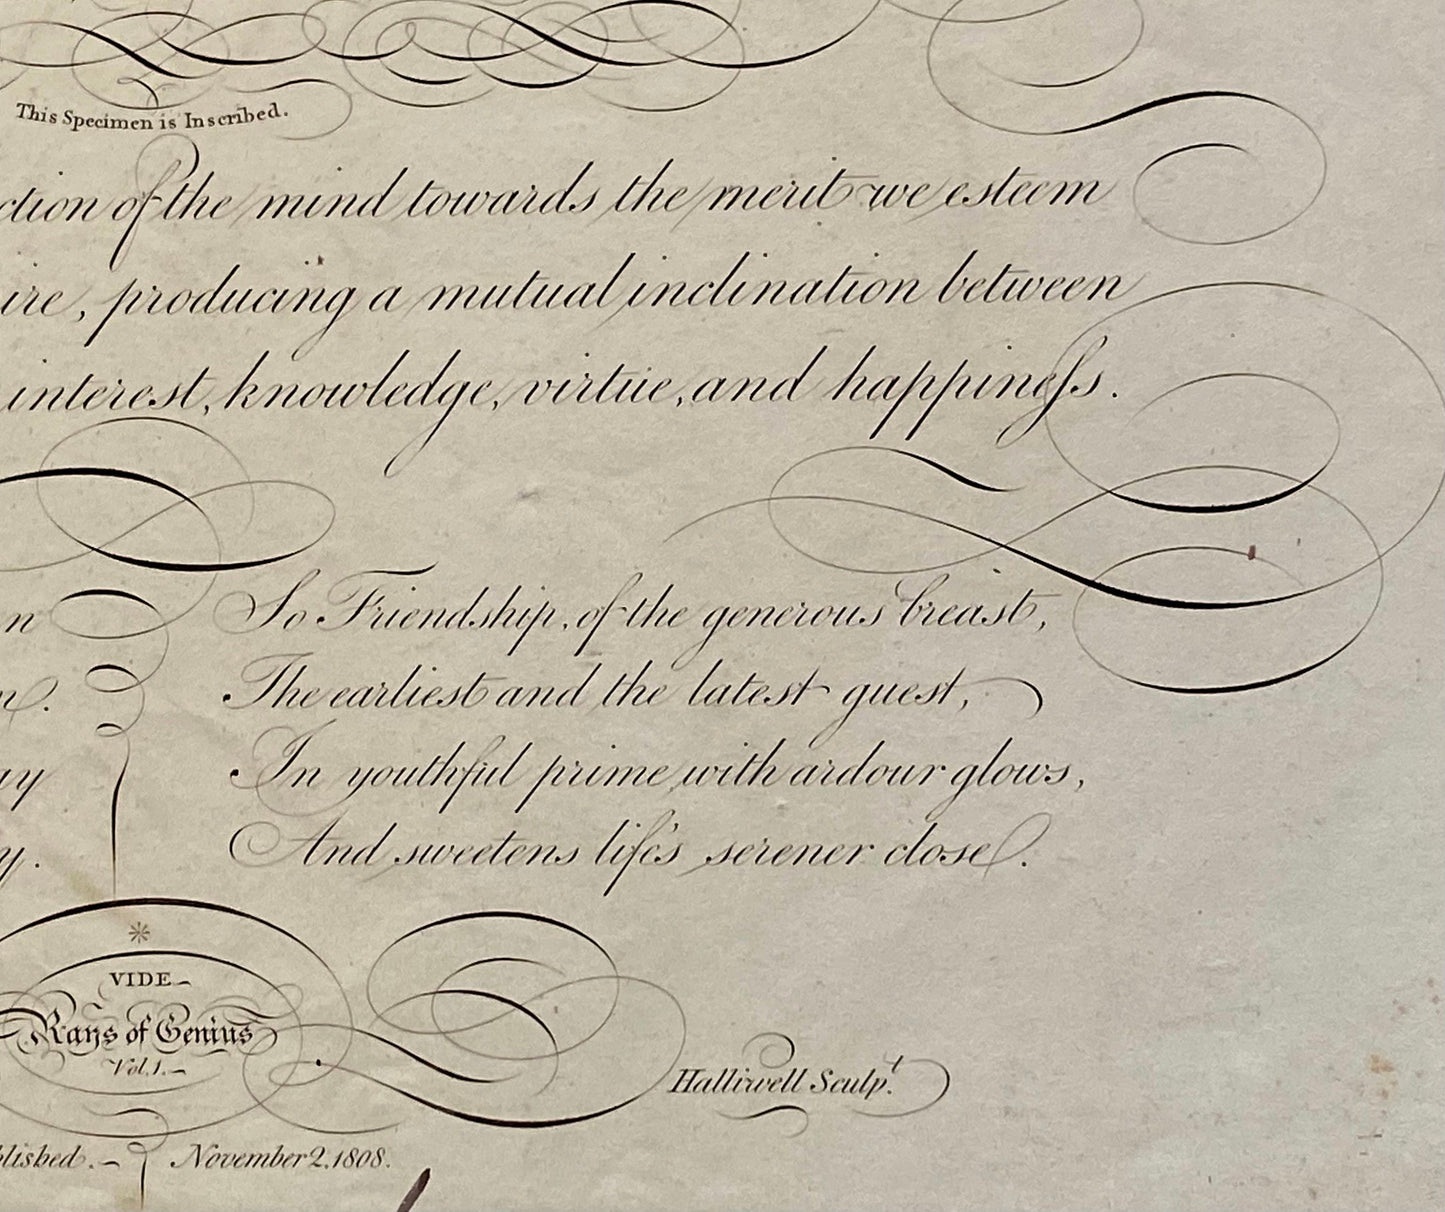 This Specimen is Inscribed.
ction of the mind towards the merit we esteem
ire, producing a mutual inclination between
interest, knowledge, virtue, and happineſs.
n
So Friendship, of the generous breast,
The earliest and the latest guest,
In youthful prime with ardour glows,
And sweetens life's serener close.
n.
ay
y.
*
VIDE
Rays of Genius
Vol. 1.
Halliwell Sculpt.
blished. November 2, 1808.